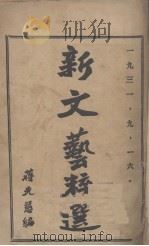 一九三一，九，一六．
新文藝粹選
編